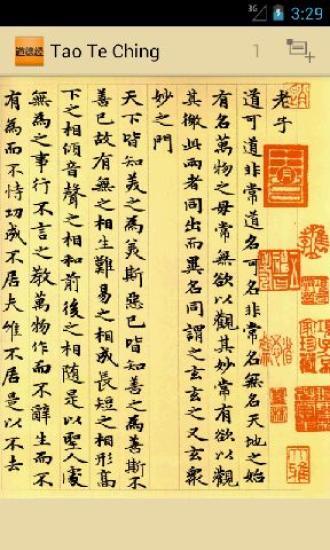 3G 3:29
道德經 Tao Te Ching 1
老子
道可道非常道名可名非常名無名天地之始
有名萬物之母常無欲以觀其妙常有欲以觀
其徼此兩者同出而異名同謂之玄玄之又玄衆
妙之門
天下皆知美之為美斯惡已皆知善之為善斯不
善已故有無之相生難易之相成長短之相形高
下之相傾音聲之相和前後之相隨是以聖人處
無為之事行不言之教萬物作而不辭生而不
有為而不恃功成不居夫唯不居是以不去